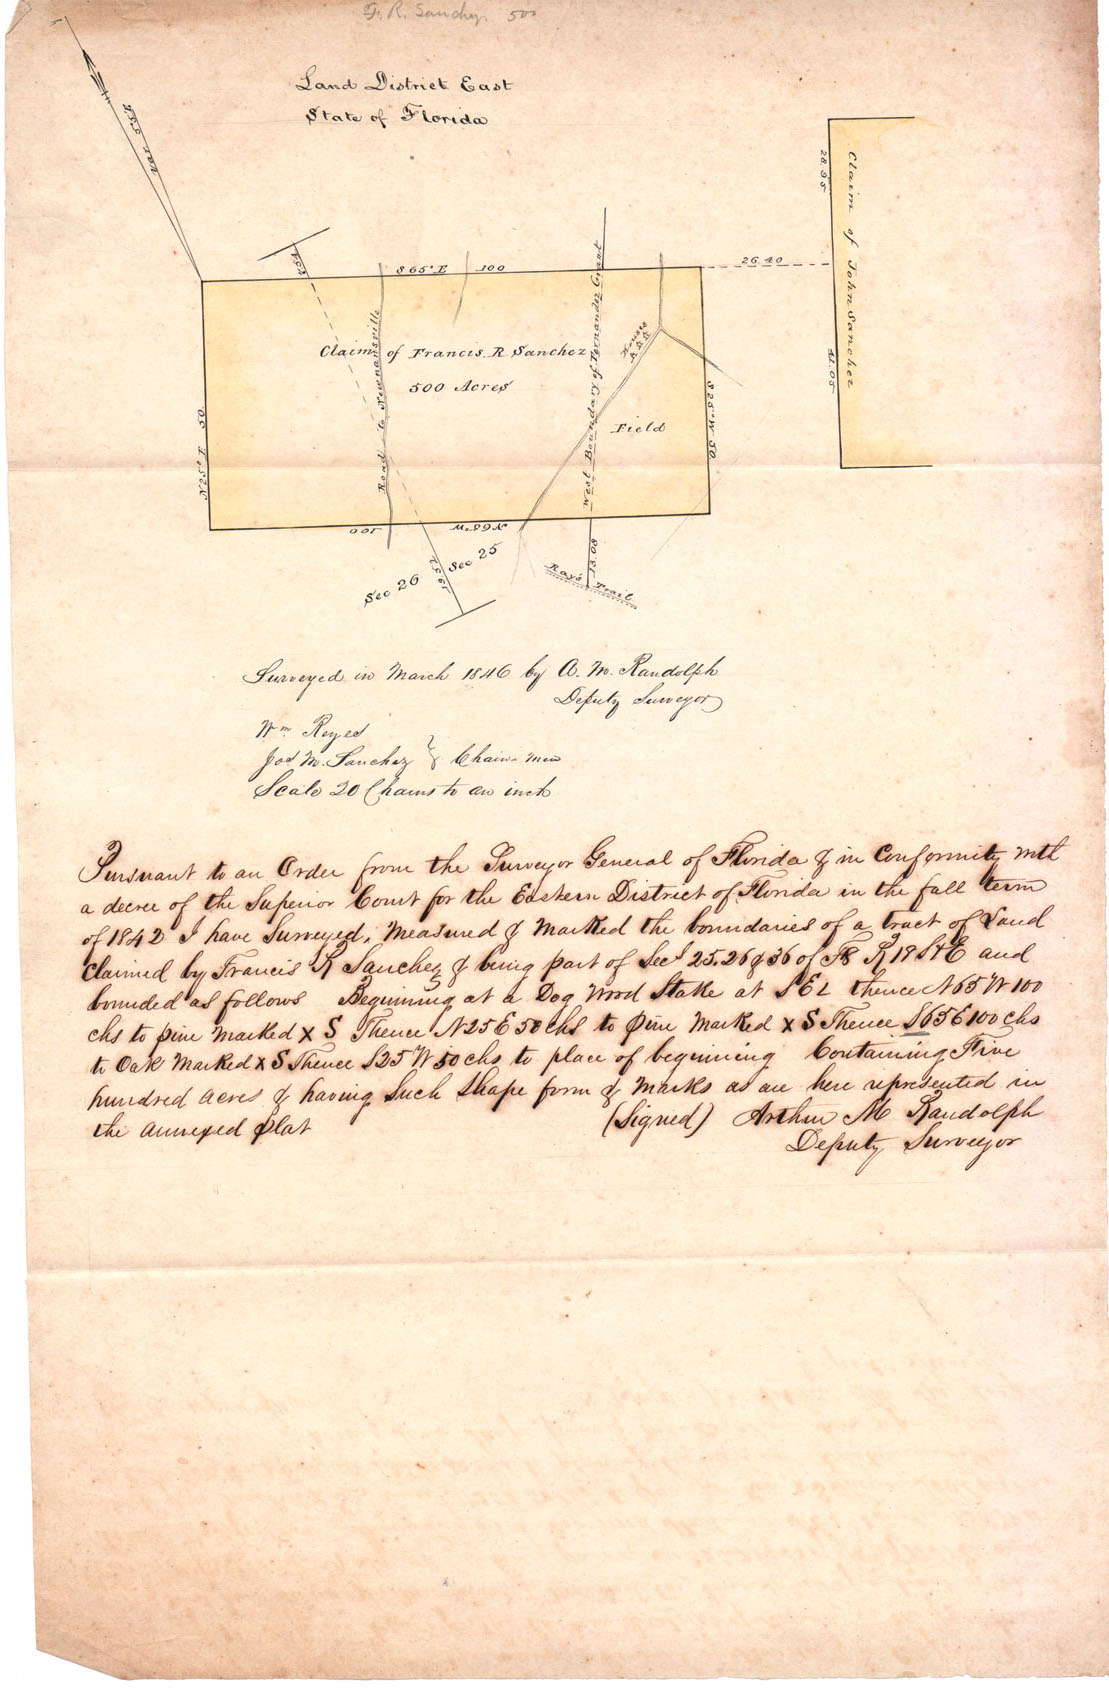 F. R. Sanchez 500
Land District East
State of Florida
Var 5°25'E
7.54
S 65° E 100
26.40
28.95
Claim of John Sanchez
41.05
Road to Newnansville
Claim of Francis. R. Sanchez
500 Acres
West Boundary of Fernander Grant
Houses
Field
N 25° E 50
S 25° W 50
100 N 65° W
Sec 26
Sec 25
13.08
Rays Trail
Surveyed in March 1846 by A. M. Randolph
Deputy Surveyor
Wm Reyes
Jos M. Sanchez } Chain men
Scale 20 Chains to an inch
Pursuant to an Order from the Surveyor General of Florida & in Conformity with
a decree of the Superior Court for the Eastern District of Florida in the fall term
of 1842 I have Surveyed, Measured & Marked the boundaries of a tract of Land
Claimed by Francis R Sanchez & being part of Secs 25. 26 & 36 of T8 R 19 S & E and
bounded as follows Beginning at a Dog Wood Stake at S E L thence N 65 W 100
chs to pine Marked X S Thence N 25 E 50 chs to pine Marked X S Thence S 65 E 100 chs
to Oak Marked X S Thence S 25 W 50 chs to place of beginning Containing Five
hundred acres & having Such Shape form & Marks as are here represented in
the annexed plat (Signed) Arthur M Randolph
Deputy Surveyor